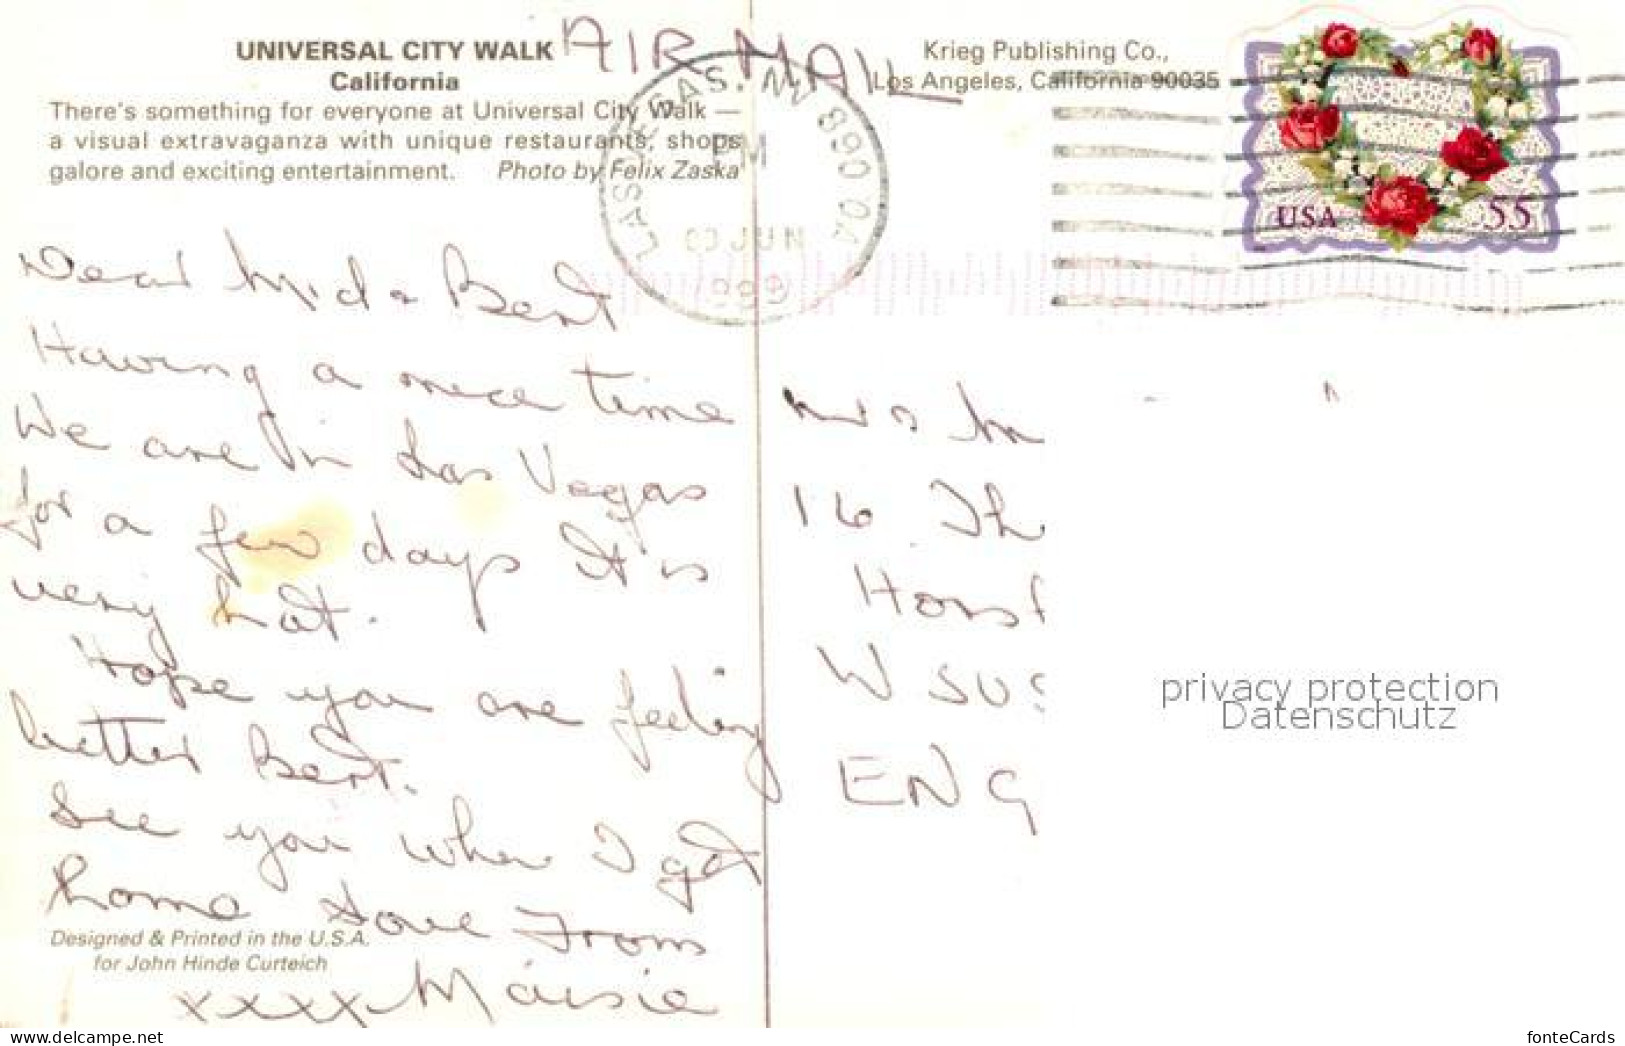 UNIVERSAL CITY WALK
California
There's something for everyone at Universal City Walk —
a visual extravaganza with unique restaurants, shops
galore and exciting entertainment. Photo by Felix Zaska
AIR MAIL
Krieg Publishing Co.,
Los Angeles, California 90035
LAS VEGAS. NV 890 04
PM
JUN
1999
USA 55
Dear & Bert
Having a nice time
We are in Las Vegas
for a few days It is
very hot.
Hope you are feeling
better Bert.
See you when I get
home Love From
xxxx Maisie
16 Th
Hors
W SUS
ENG
privacy protection
Datenschutz
Designed & Printed in the U.S.A.
for John Hinde Curteich
www.ansichtskarten-center.de
fonteCards